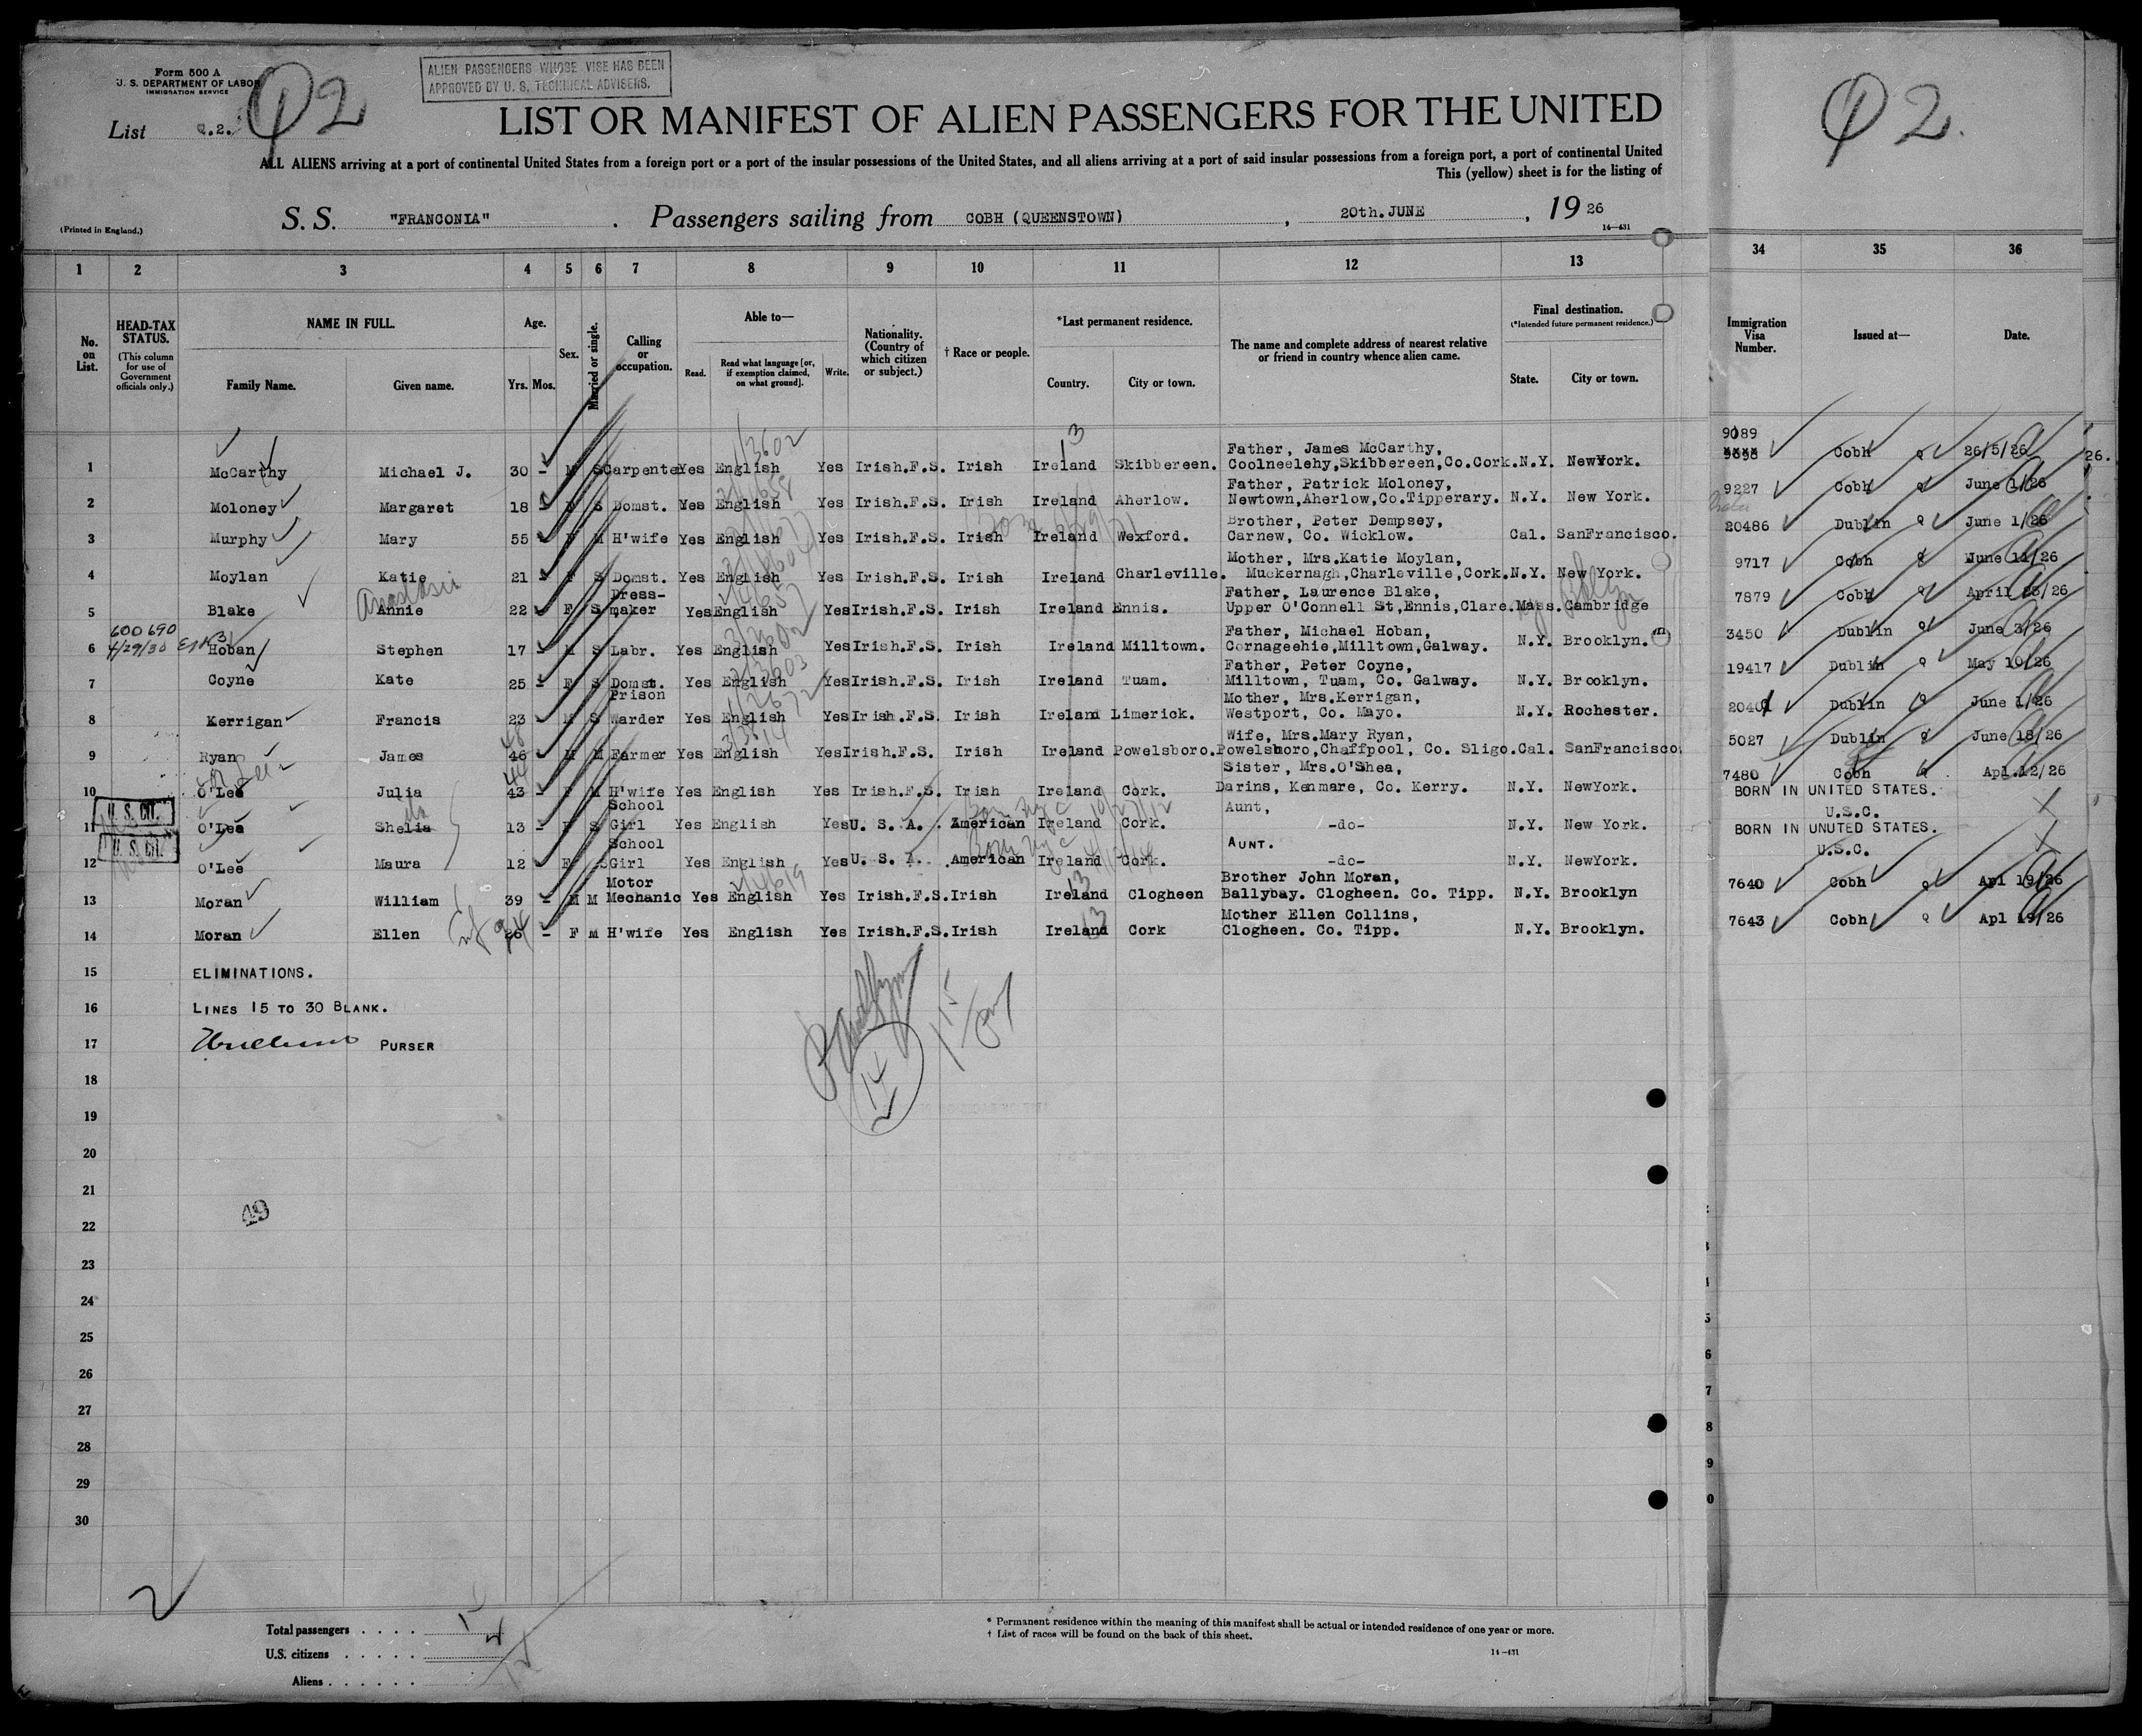 Form 500 A
U. S. DEPARTMENT OF LABOR
IMMIGRATION SERVICE
ALIEN PASSENGERS WHOSE VISE HAS BEEN
APPROVED BY U. S. TECHNICAL ADVISERS.
List 2.
Q2
Q2.
LIST OR MANIFEST OF ALIEN PASSENGERS FOR THE UNITED
ALL ALIENS arriving at a port of continental United States from a foreign port or a port of the insular possessions of the United States, and all aliens arriving at a port of said insular possessions from a foreign port, a port of continental United
This (yellow) sheet is for the listing of
(Printed in England.)
S. S. "FRANCONIA". Passengers sailing from COBH (QUEENSTOWN), 20th.JUNE, 1926
14—431
1 2 3 4 5 6 7 8 9 10 11 12 13 34 35 36
No. on List.
HEAD-TAX STATUS.
(This column for use of Government officials only.)
NAME IN FULL.
Family Name. Given name.
Age.
Yrs. Mos.
Sex.
Married or single.
Calling or occupation.
Able to—
Read. Read what language [or, if exemption claimed, on what ground]. Write.
Nationality. (Country of which citizen or subject.)
† Race or people.
*Last permanent residence.
Country. City or town.
The name and complete address of nearest relative or friend in country whence alien came.
Final destination.
(*Intended future permanent residence.)
State. City or town.
Immigration Visa Number.
Issued at—
Date.
1 McCarthy Michael J. 30 - M S Carpenter Yes English Yes Irish.F.S. Irish Ireland Skibbereen. Father, James McCarthy, Coolneelehy,Skibbereen,Co.Cork. N.Y. NewYork. 9089 Cobh 26/5/26
2 Moloney Margaret 18 - F S Domst. Yes English Yes Irish.F.S. Irish Ireland Aherlow. Father, Patrick Moloney, Newtown,Aherlow,Co.Tipperary. N.Y. New York. 9227 Cobh June 1/26
3 Murphy Mary 55 F M H'wife Yes English Yes Irish.F.S. Irish Ireland Wexford. Brother, Peter Dempsey, Carnew, Co. Wicklow. Cal. SanFrancisco. 20486 Dublin June 1/26
4 Moylan Katie 21 - F S Domst. Yes English Yes Irish.F.S. Irish Ireland Charleville. Mother, Mrs.Katie Moylan, Muckernagh,Charleville,Cork. N.Y. New York. 9717 Cobh June 11/26
Anastasia
5 Blake Annie 22 F S Dress-maker Yes English Yes Irish.F.S. Irish Ireland Ennis. Father, Laurence Blake, Upper O'Connell St,Ennis,Clare. Mass. Cambridge 7879 Cobh April 23/26
600 690
4/29/30
6 Hoban Stephen 17 - M S Labr. Yes English Yes Irish.F.S. Irish Ireland Milltown. Father, Michael Hoban, Cornageehie,Milltown,Galway. N.Y. Brooklyn. 3450 Dublin June 3/26
7 Coyne Kate 25 - F S Domst. Yes English Yes Irish.F.S. Irish Ireland Tuam. Father, Peter Coyne, Milltown, Tuam, Co. Galway. N.Y. Brooklyn. 19417 Dublin May 10/26
8 Kerrigan Francis 23 M S Prison Warder Yes English Yes Irish.F.S. Irish Ireland Limerick. Mother, Mrs.Kerrigan, Westport, Co. Mayo. N.Y. Rochester. 20401 Dublin June 1/26
9 Ryan James 46 - M M Farmer Yes English Yes Irish.F.S. Irish Ireland Powelsboro. Wife, Mrs.Mary Ryan, Powelsboro,Chaffpool, Co. Sligo. Cal. SanFrancisco. 5027 Dublin June 18/26
10 O'Lee Julia 43 - F M H'wife Yes English Yes Irish.F.S. Irish Ireland Cork. Sister, Mrs.O'Shea, Darins, Kenmare, Co. Kerry. N.Y. NewYork. 7480 Cobh Apl.12/26
U. S. CIT.
11 O'Lee Shelia 13 - F S School Girl Yes English Yes U. S. A. American Ireland Cork. Aunt, -do- N.Y. New York. BORN IN UNITED STATES. U.S.C.
U. S. CIT.
12 O'Lee Maura 12 F S School Girl Yes English Yes U. S. A. American Ireland Cork. AUNT. -do- N.Y. NewYork. BORN IN UNUTED STATES. U.S.C.
13 Moran William 39 - M M Motor Mechanic Yes English Yes Irish.F.S. Irish Ireland Clogheen Brother John Moran, Ballybay. Clogheen. Co. Tipp. N.Y. Brooklyn 7640 Cobh Apl 19/26
14 Moran Ellen - F M H'wife Yes English Yes Irish.F.S. Irish Ireland Cork Mother Ellen Collins, Clogheen. Co. Tipp. N.Y. Brooklyn. 7643 Cobh Apl 19/26
15 ELIMINATIONS.
16 LINES 15 TO 30 BLANK.
17 PURSER
14
18
19
20
21
49
22
23
24
25
26
27
28
29
30
2
Total passengers . . . .
U.S. citizens . . . . .
Aliens . . . . . .
* Permanent residence within the meaning of this manifest shall be actual or intended residence of one year or more.
† List of races will be found on the back of this sheet.
14—431